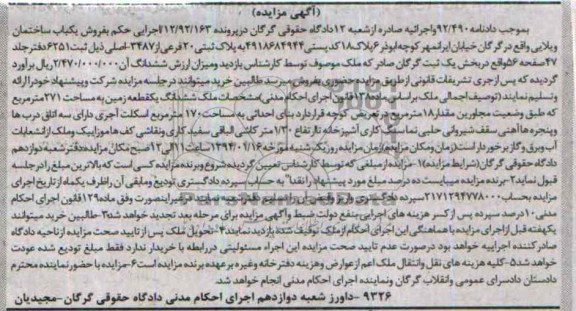 (آگهی مزایده)
بموجب دادنامه ۹۲/۴۹۰ واجرائیه صادره ازشعبه ۱۲دادگاه حقوقی گرگان درپرونده ۱۲/۹۲/۱۶۳اجرایی حکم بفروش یکباب ساختمان
ویلایی واقع در گرگان خیابان ایرانمهر کوچه ابوذر۶ پلاک۱۸کدپستی۴۹۱۸۶۸۴۹۴۴ به پلاک ثبتی ۲۰فرعی از۳۴۸۷-اصلی ذیل ثبت۶۲۵۱دفترجلد
۴۷صفحه ۵۶واقع دربخش یک ثبت گرگان صادر که ملک موصوف توسط کارشناس بازدید ومیزان ارزش ششدانگ آن۲/۴۷۰/۰۰۰/۰۰۰ریال برآورد
گردیده که پس ازجری تشریفات قانونی ازطریق مزایده حضوری بفروش میرسد طالبین خرید میتوانند درجلسه مزایده شرکت وپیشنهاد خودرا ارائه
وتسلیم نمایند (توصیف اجمالی ملک براساس ماده ۱۳۸قانون اجرای احکام مدنی)مشخصات ملک ششدانگ یکقطعه زمین به مساحت ۲۷۱مترمربع
که طبق وضعیت مجاورین مقدار۱۸مترمربع درتعریض کوچه قراردارد بنای احداثی به مساحت ۱۷۰ مترمربع اسکلت آجری دارای سه اتاق درب ها
وپنجره ها آهنی سقف شیروانی حلبی نما سنگ کاری آشپزخانه تا ارتفاع ۱/۳۰متر کاشی الباقی سفید کاری ونقاشی کف ها موزاییک وملک ازانشعابات
آب وبرق وگاز برخورداراست(زمان ومکان مزایده)زمان مزایده روزیکشنبه مورخه۱۳۹۴/۰۲/۱۶ساعت۱۱الی۱۲صبح مکان مزایده:دفترشعبه دوازدهم
دادگاه حقوقی گرگان(شرایط مزایده)۱-مزایده ازمبلغی که توسط کارشناس تعیین گردیده شروع وبرنده مزایده کسی است که بالاترین مبلغ رادرجلسه
قبول نماید۲-برنده مزایده میبایست ده درصد مبلغ مورد پیشنهاد رانقدا" به حساب سپرده دادگستری تودیع ومابقی آن راظرف یکماه از تاریخ اجرای
مزایده بحساب۲۱۷۱۲۹۴۷۷۸۰۰۰سپرده دادگستری واریز وفیش آنرا تسلیم دفترشعبه نماید درغیراینصورت وفق ماده۱۲۹قانون اجرای احکام
مدنی۱۰درصد سپرده پس از کسر هزینه های اجرایی بنفع دولت ضبط وآگهی مزایده برای مرحله بعد تجدید خواهد شد۳-طالبین خرید میتوانند
یکهفته قبل ازاجرای مزایده باهماهنگی این اجرای احکام ازملک توقیف شده بازدید نمایند۴-تحویل ملک پس از تایید صحت مزایده ازناحیه دادگاه
صادر کننده اجراییه خواهد بود درصورت عدم تایید صحت مزایده این اجراء مسئولیتی دررابطه با خریدار ندارد فقط مبلغ تودیع شده عودت
خواهد شد۵-کلیه هزینه های نقل وانتقال ملک اعم ازعوارض وهزینه دفترخانه وغیره برعهده برنده مزایده است۶-مزایده با حضورنماینده محترم
دادستان دادسرای عمومی وانقلاب گرگان ونماینده اجرای احکام مدنی انجام خواهد شد.
۹۳۲۶ -داورز شعبه دوازدهم اجرای احکام مدنی دادگاه حقوقی گرگان-مجیدیان